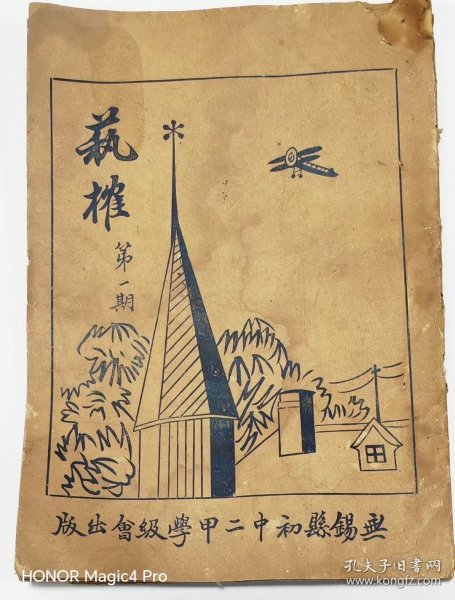 蓺榷
第一期
無錫縣初中二甲學級會出版
HONOR Magic4 Pro
孔夫子旧书网
www.kongfz.com